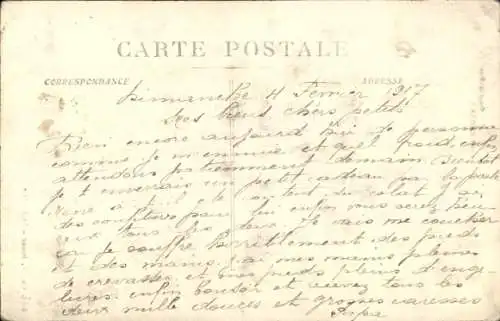 CARTE POSTALE
CORRESPONDANCE
ADRESSE
Dimanche 4 Fevrier 1917
Mes biens chers petits
Rien encore aujourd hui de personne
comme je m ennuie et quel froid enfin
attendons patiemment demain bientot
je t enverrais un petit cadeau par la poste
du
des confitures pour enfin vous serez heu
eux tous les deux Je vais me coucher
car je souffre horriblement des pieds
et des mains j ai mes mains pleines
de crevasses et mes pieds pleins d enge
lures enfin bonsoir et recevez tous les
deux mille douces et grosses caresses
Papa